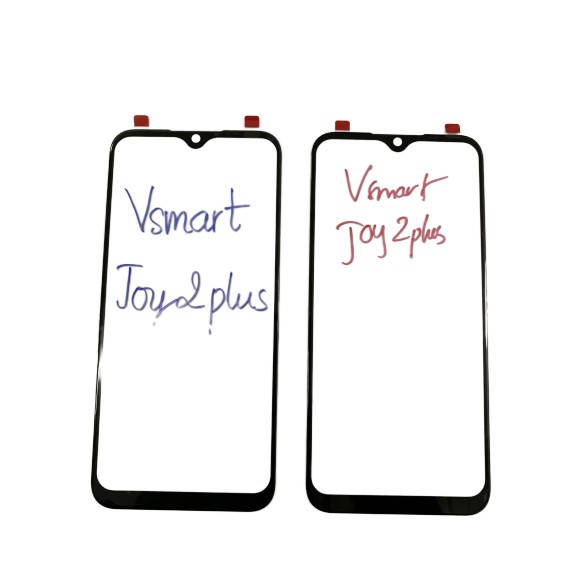 Vsmart
Joy2plus
Vsmart
Joy 2 plus